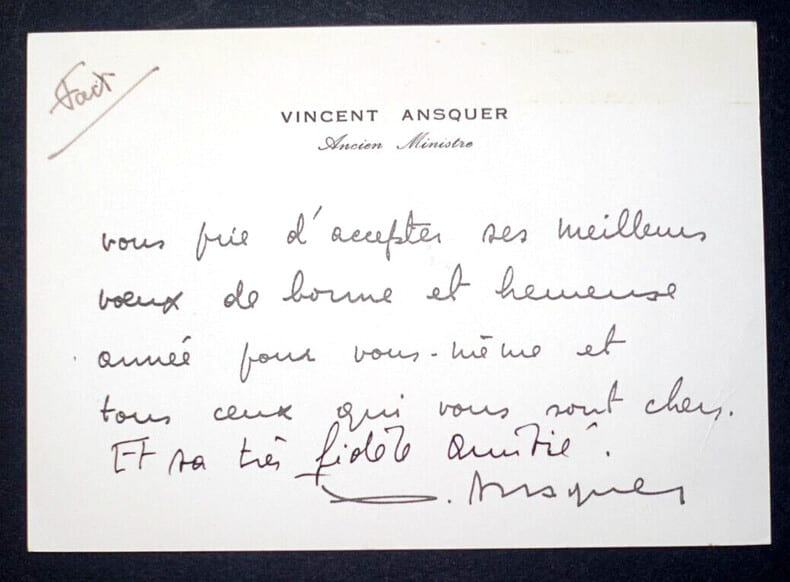 Fait
VINCENT ANSQUER
Ancien Ministre
vous prie d'accepter ses meilleurs
vœux de bonne et heureuse
année pour vous-même et
tous ceux qui vous sont chers.
Et sa très fidèle amitié.
V. Ansquer